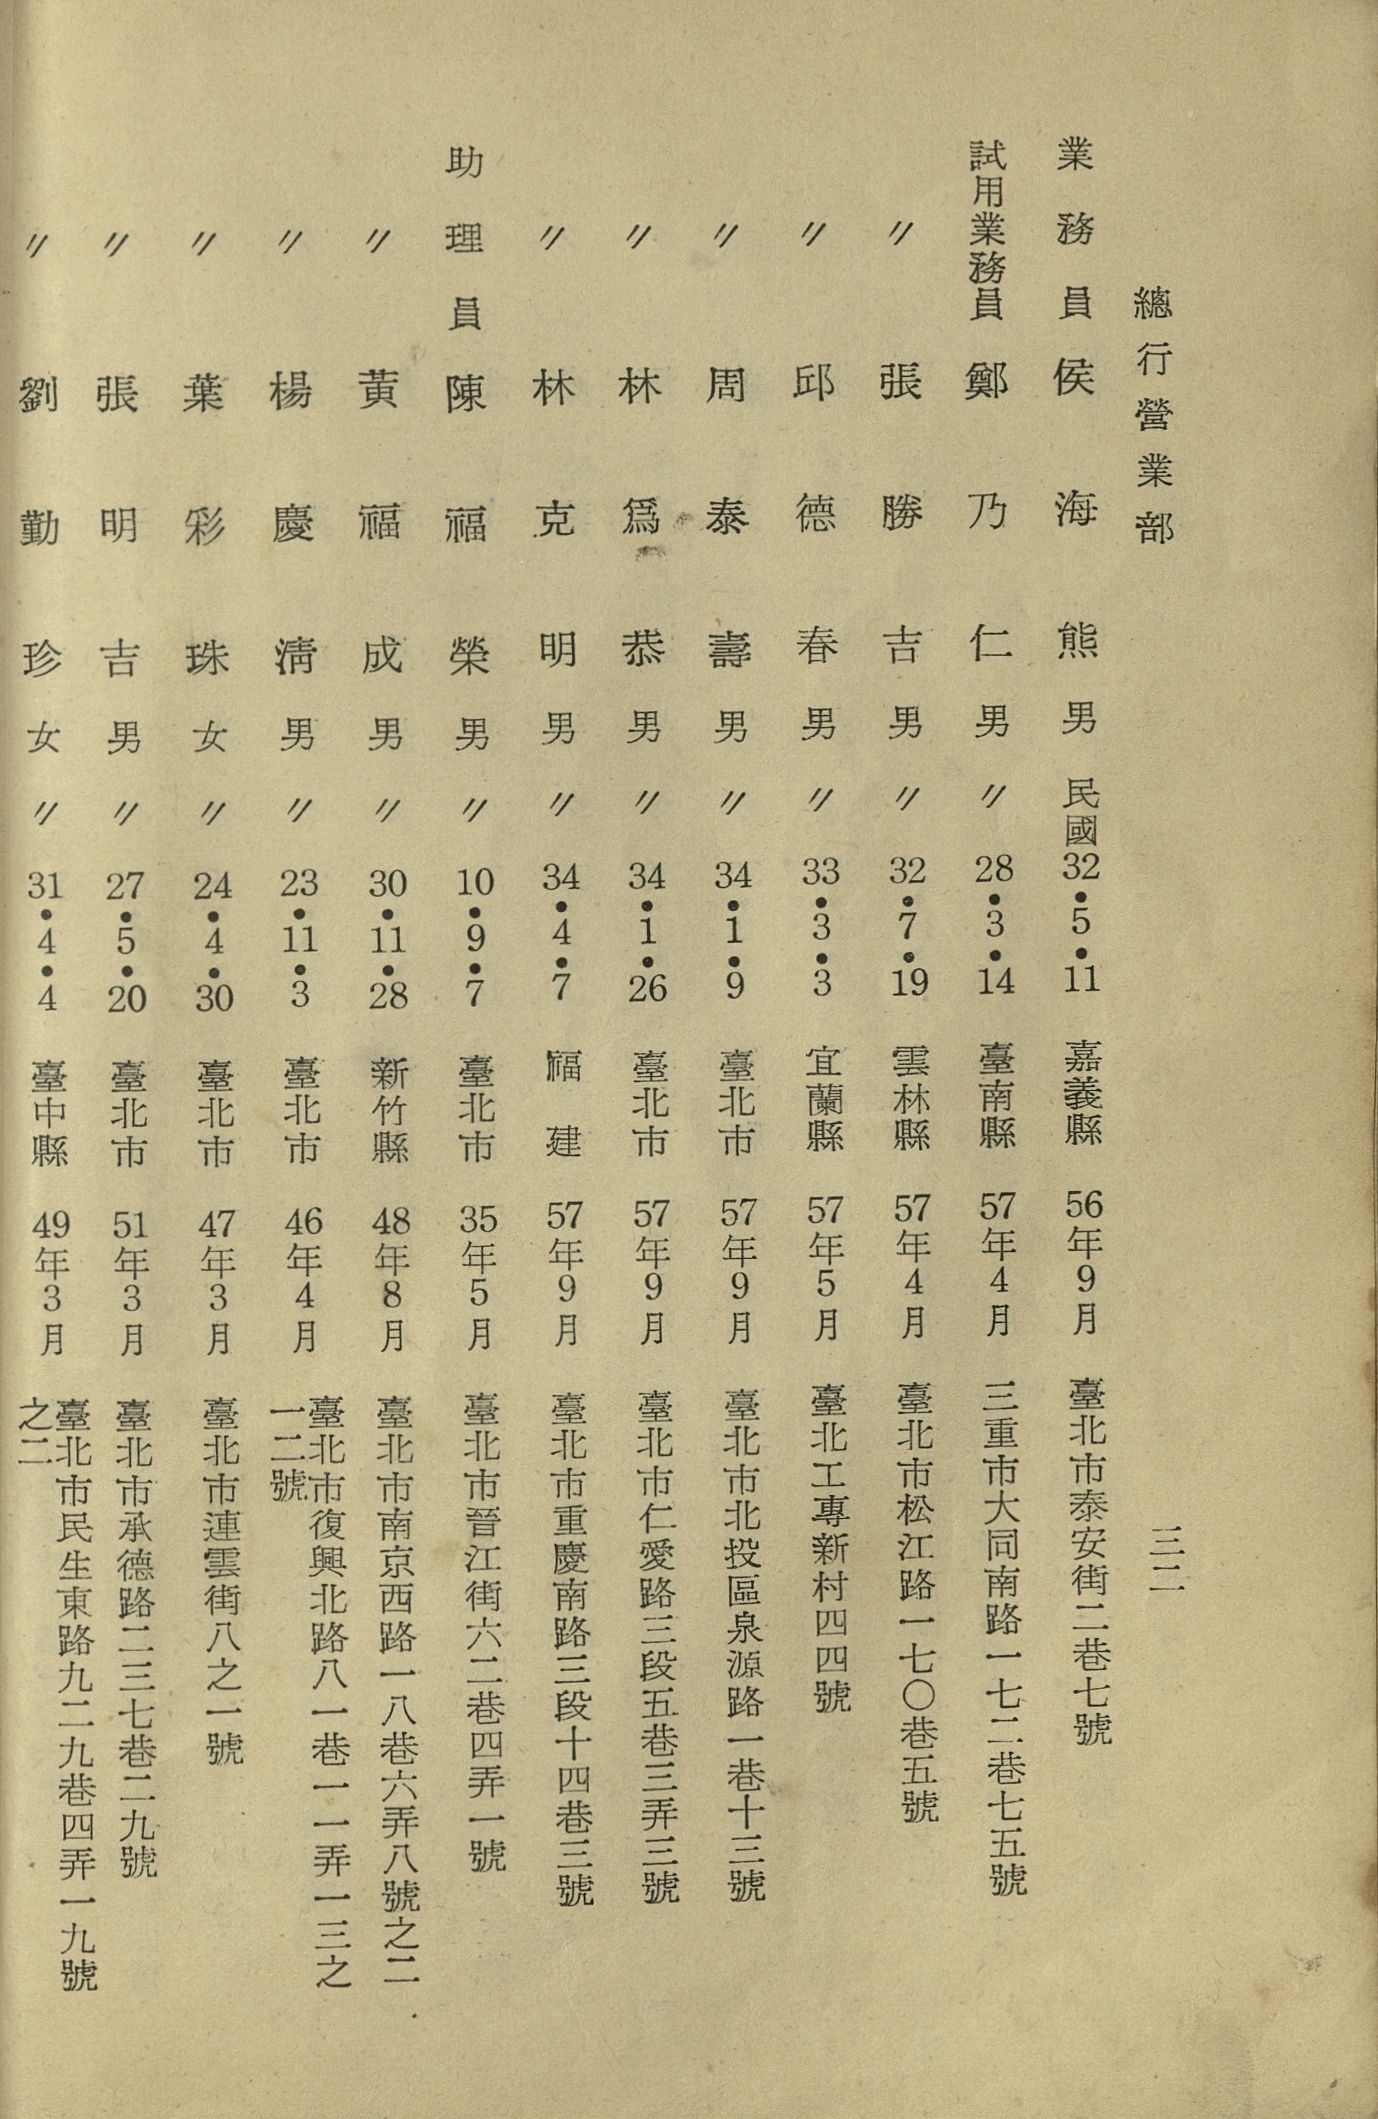 總行營業部
三二
業務員 侯海熊 男 民國32•5•11 嘉義縣 56年9月 臺北市泰安街二巷七號
試用業務員 鄭乃仁 男 〃 28•3•14 臺南縣 57年4月 三重市大同南路一七二巷七五號
〃 張勝吉 男 〃 32•7•19 雲林縣 57年4月 臺北市松江路一七〇巷五號
〃 邱德春 男 〃 33•3•3 宜蘭縣 57年5月 臺北工專新村四四號
〃 周泰壽 男 〃 34•1•9 臺北市 57年9月 臺北市北投區泉源路一巷十三號
〃 林爲恭 男 〃 34•1•26 臺北市 57年9月 臺北市仁愛路三段五巷三弄三號
〃 林克明 男 〃 34•4•7 福建 57年9月 臺北市重慶南路三段十四巷三號
助理員 陳福榮 男 〃 10•9•7 臺北市 35年5月 臺北市晉江街六二巷四弄一號
〃 黃福成 男 〃 30•11•28 新竹縣 48年8月 臺北市南京西路一八巷六弄八號之二
〃 楊慶淸 男 〃 23•11•3 臺北市 46年4月 臺北市復興北路八一巷一一弄一三之
一二號
〃 葉彩珠 女 〃 24•4•30 臺北市 47年3月 臺北市連雲街八之一號
〃 張明吉 男 〃 27•5•20 臺北市 51年3月 臺北市承德路二三七巷二九號
〃 劉勤珍 女 〃 31•4•4 臺中縣 49年3月 臺北市民生東路九二九巷四弄一九號
之二